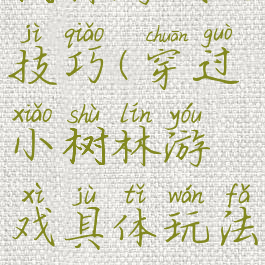 jì qiǎo chuān guò
技巧(穿过
xiǎo shù lín yóu
小树林游
xì jù tǐ wán fǎ
戏具体玩法